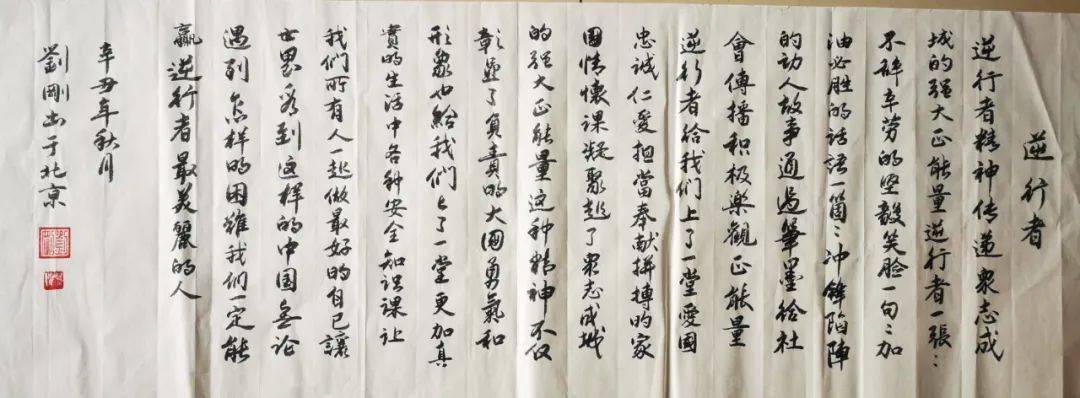 逆行者
逆行者精神传递衆志成
城的强大正能量逆行者一張:
不辞辛劳的坚毅笑脸一句:加
油必胜的话语一箇:冲锋陷陣
的动人故事通過筆墨给社
會傳播积极樂観正能量
逆行者给我们上了一堂爱國
忠诚仁爱担當奉献拼搏的家
国情懷课凝聚起了衆志成城
的强大正能量这种精神不仅
彰显了負責的大國勇氣和
形象也給我们上了一堂更加真
實的生活中各种安全知识课让
我们所有人一起做最好的自己讓
世界看到这样的中国无论
遇到怎样的困难我们一定能
贏逆行者最美麗的人
辛丑年秋月
劉剛出于北京